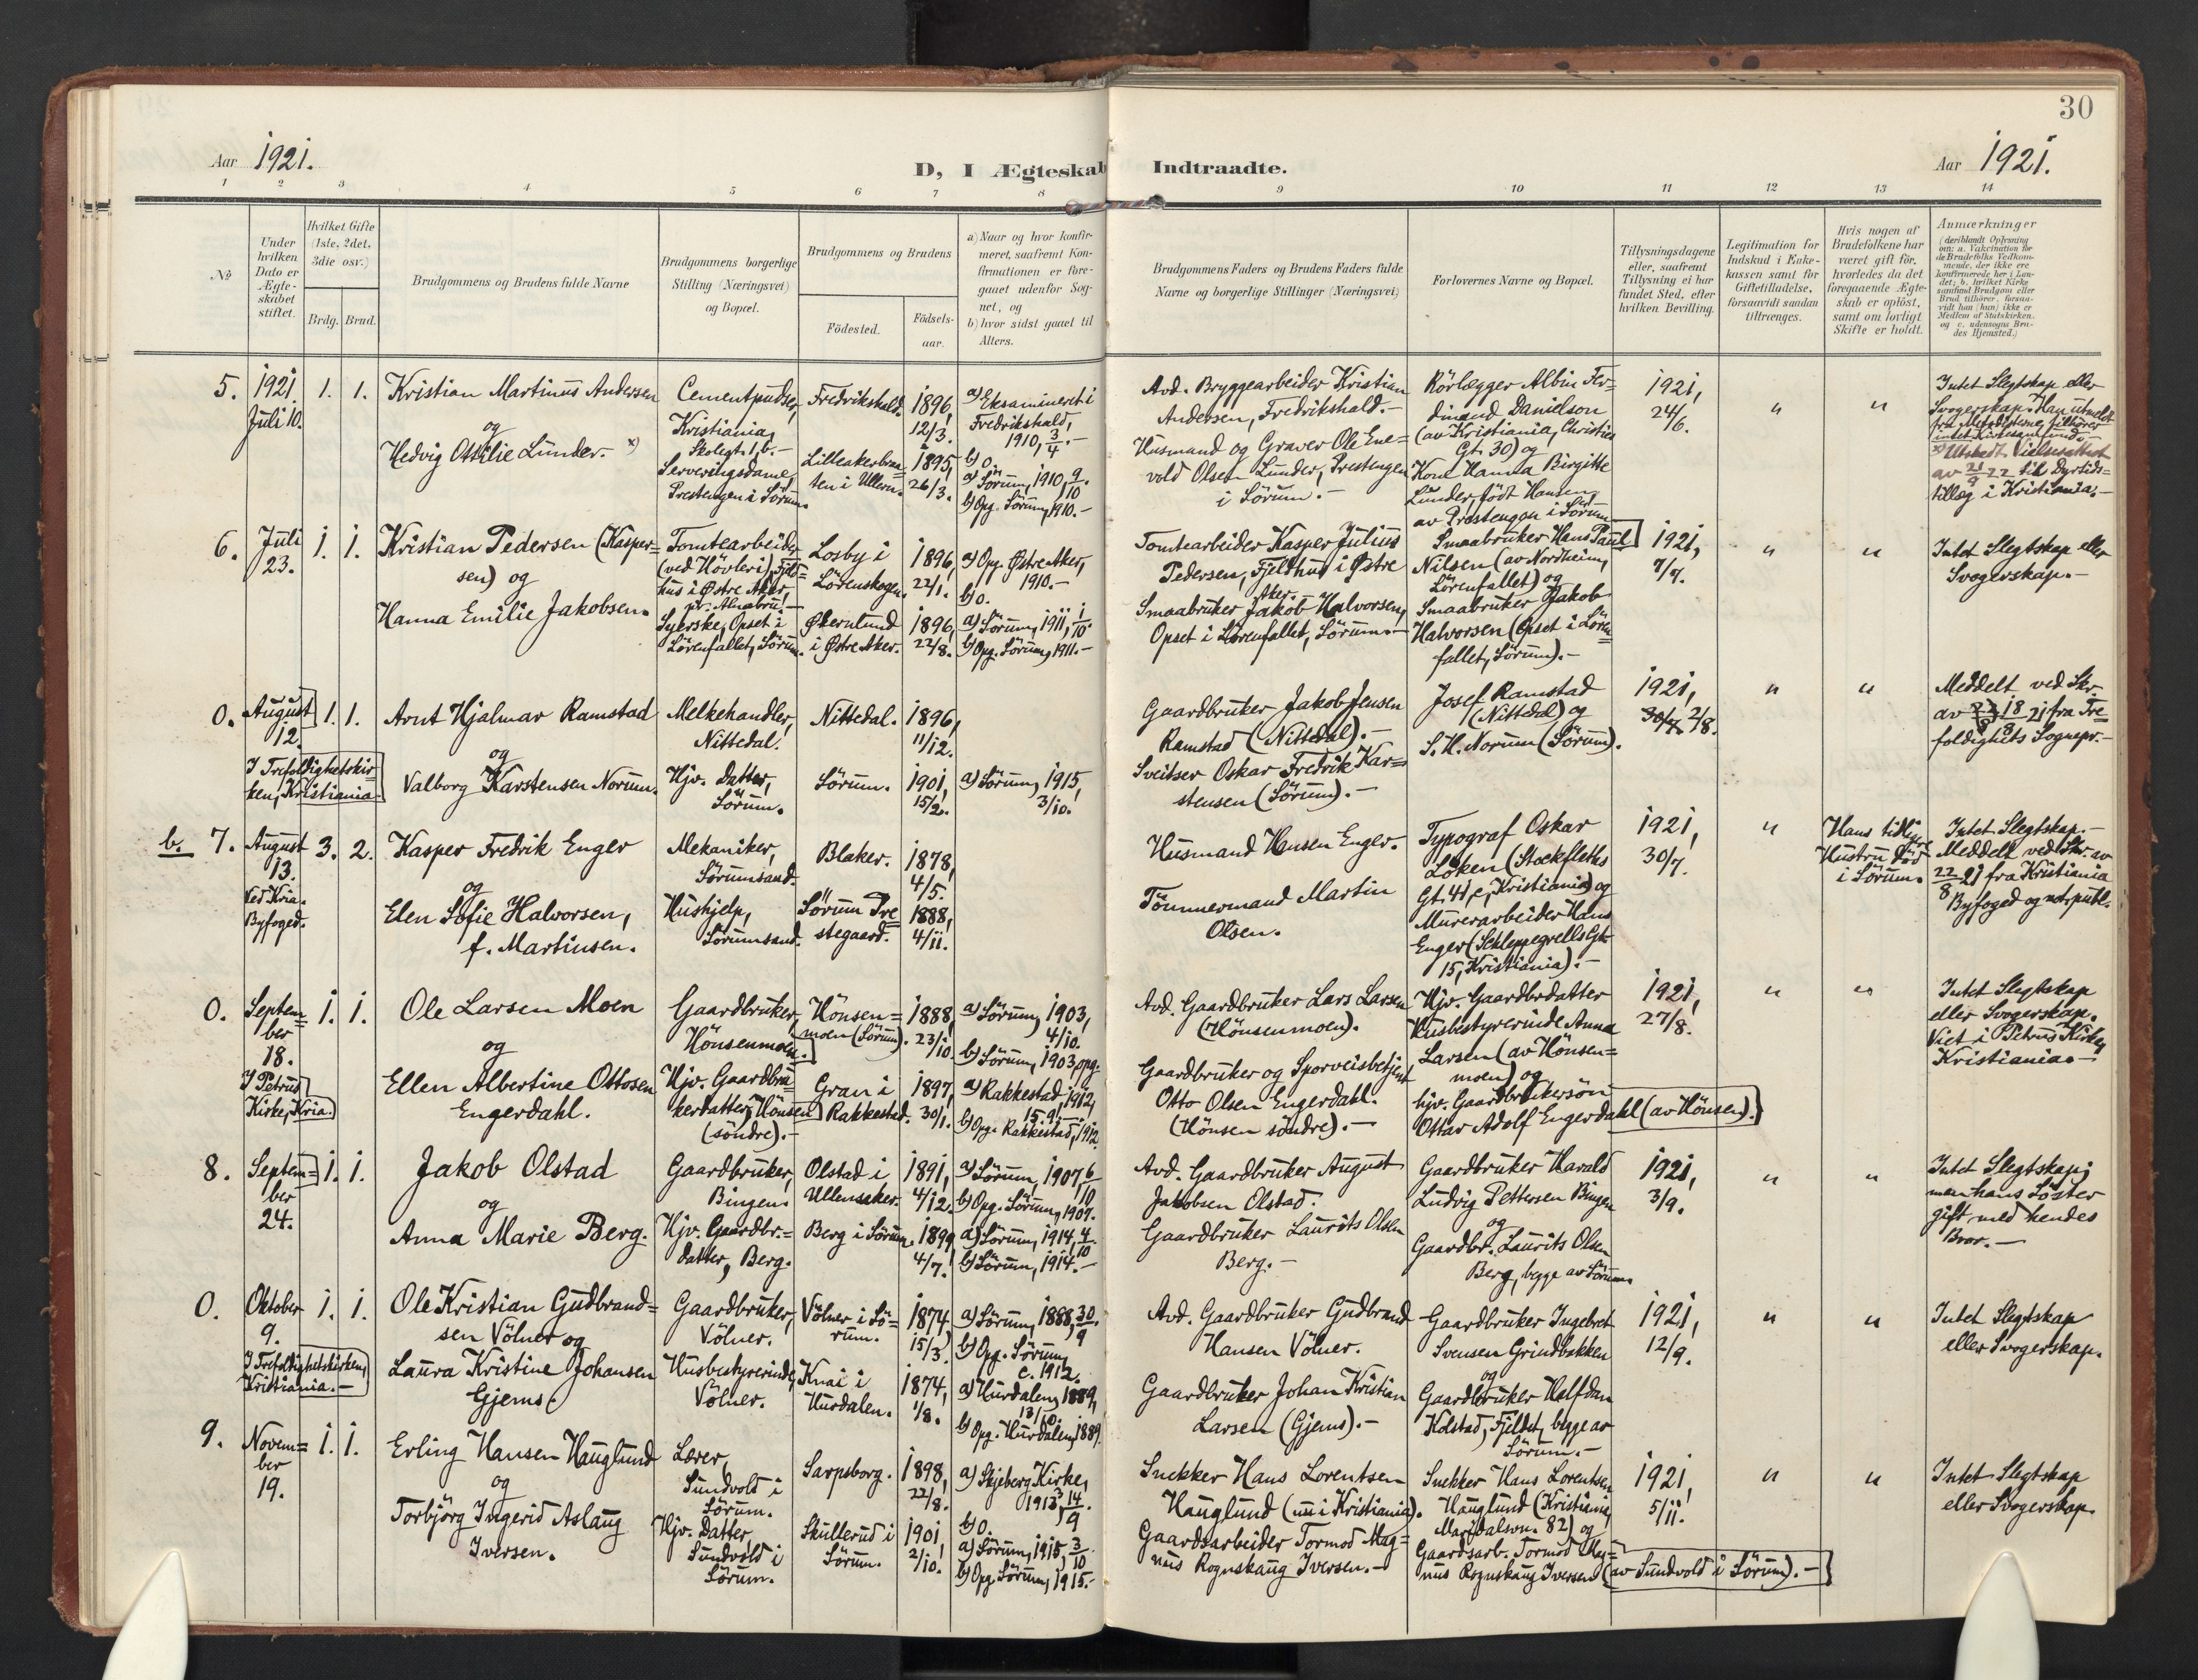 30
Aar 1921.
D, I Ægteskab Indtraadte.
Aar 1921.
1 2 3 4 5 6 7 8 9 10 11 12 13 14
№
Under hvilken Dato er Ægte-skabet stiftet.
Hvilket Gifte (1ste, 2det, 3die osv.)
Brdg. Brud.
Brudgommens og Brudens fulde Navne
Brudgommens borgerlige Stilling (Næringsvei) og Bopæl.
Brudgommens og Brudens
Födested.
Födsels-aar.
a) Naar og hvor konfir-meret, saafremt Kon-firmationen er fore-gaaet udenfor Sog-net, og
b) hvor sidst gaaet til Alters.
Brudgommens Faders og Brudens Faders fulde Navne og borgerlige Stillinger (Næringsvei)
Forlovernes Navne og Bopæl.
Tillysningsdagene eller, saafremt Tillysning ei har fundet Sted, efter hvilken Bevilling.
Legitimation for Indskud i Enke-kassen samt for Giftetilladelse, forsaavidt saadan tiltrænges.
Hvis nogen af Brudefolkene har været gift för, hvorledes da det foregaaende Ægte-skab er oplöst, samt om lovligt Skifte er holdt.
Anmærkninger
(deriblandt Oplysning om: a. Vakcination for de Brudefolks Vedkom-mende, der ikke ere konfirmerede her i Lan-det; b. hvilket Kirke samfund Brudgom eller Brud tilhörer, forsaa-vidt han (hun) ikke er Medlem af Statskirken, og c. udensogns Bru-des Hjemsted.)
5. 1921. Juli 10. 1. 1.
Kristian Martinus Andersen
og
Hedvig Ottilie Lunder. x)
Cementpudser, Kristiania, Skolegt. 1, b.
Serveringsdame, Prestengen i Sörum.
Fredrikshald. 1896, 12/3.
Lilleakerbraaten i Ullern. 1895, 26/3.
a) Eksamineret i Fredrikshald, 1910, 3/4.
b) 0.
a) Sörum, 1910, 9/10.
b) Opg. Sörum, 1910.
Avd. Bryggearbeider Kristian Andersen, Fredrikshald.
Husmand og Graver Ole Ene=
vold Olsen Lunder, Prestengen
i Sörum.
Rörlægger Albin Fer=
dinand Danielson
(av Kristiania, Christies
Gt. 30) og
Kone Hanna Birgitte
Lunder, född Hansen,
av Prestengen i Sörum.
1921, 24/6.
" "
Intet Slegtskap eller
Svogerskap. Han utmeldt
fra Metodisterne, tilhörer
intet Kirkesamfund.
x) Utstedt Vielsesattest
av 21/9 22 til Dyrtids=
tillæg i Kristiania.
6. Juli 23. 1. 1.
Kristian Pedersen (Kasper=
sen) og
Hanna Emilie Jakobsen.
Tomtearbeider
(ved Hövleri), Fjeld=
hus i Østre Aker,
pr. Alnabru.
Syerske, Opset i
Lörenfallet, Sörum.
Losby i Lörenskogen. 1896, 22/1.
Økernlund i Østre Aker. 1896, 22/8.
a) Opg. Østre Aker, 1910.
b) 0.
a) Sörum, 1911, 1/10.
b) Opg. Sörum, 1911.
Tomtearbeider Kasper Julius
Pedersen, Fjeldhus i Østre
Aker.
Smaabruker Jakob Halvorsen,
Opset i Lörenfallet, Sörum.
Smaabruker Hans Paul
Nilsen (av Nordheim,
Lörenfallet) og
Smaabruker Jakob
Halvorsen (Opset i Lören=
fallet, Sörum).
1921, 7/7.
" "
Intet Slegtskap eller
Svogerskap.
0. August 12. 1. 1.
I Trefoldighetskir=
ken, Kristiania.
Arnt Hjalmar Ramstad
og
Valborg Karstensen Norum.
Melkehandler,
Nittedal.
Hjv. Datter,
Sörum.
Nittedal. 1896, 11/12.
Sörum. 1901, 15/2.
a) Sörum, 1915, 3/10.
Gaardbruker Jakob Jensen
Ramstad (Nittedal).
Sveitser Oskar Fredrik Kar=
stensen (Sörum).
Josef Ramstad
(Nittedal) og
S. H. Norum (Sörum).
1921, 30/7 2/8.
" "
Meddelt ved Skr.
av 18/8 21 fra Tre=
foldighets Sognepr.
b. 7. August 13. 3. 2.
Ved Kria. Byfoged.
Kasper Fredrik Enger
og
Elen Sofie Halvorsen,
f. Martinsen.
Mekaniker,
Sörumsand.
Hushjelp,
Sörumsand.
Blaker. 1878, 4/5.
Sörum Pre=
stegaard. 1888, 4/11.
Husmand Hansen Enger.
Tömmermand Martin
Olsen.
Typograf Oskar
Löken (Stockfleths
Gt. 41, c, Kristiania) og
Murerarbeider Hans
Enger (Schleppegrells Gt.
15, Kristiania).
1921, 30/7.
"
Hans tidligere
Hustru död
i Sörum.
Intet Slegtskap.
Meddelt ved Skr. av
22/8 21 fra Kristiania
Byfoged og not. publ.
0. Septem=
ber 18. 1. 1.
I Petrus Kirke, Kria.
Ole Larsen Moen
og
Ellen Albertine Ottosen
Engerdahl.
Gaardbruker,
Hönsenmoen.
Hjv. Gaardbru=
kerdatter, Hönsen
(söndre).
Hönsen=
moen (Sörum). 1888, 23/10.
Gran i
Rakkestad. 1897, 30/1.
a) Sörum, 1903, 4/10.
b) Sörum, 1903, opg.
a) Rakkestad, 1912, 15/9.
b) Opg. Rakkestad, 1912.
Avd. Gaardbruker Lars Larsen
(Hönsenmoen).
Gaardbruker og Sporveisbetjent
Otto Olsen Engerdahl.
(Hönsen söndre).
Hjv. Gaardbrdatter
Husbestyrerinde Anna
Larsen (av Hönsen=
moen) og
hjv. Gaardbrukersön
Ottar Adolf Engerdahl (av Hönsen).
1921, 27/8.
" "
Intet Slegtskap
eller Svogerskap.
Viet i Petrus Kirke,
Kristiania.
8. Septem=
ber 24. 1. 1.
Jakob Olstad
og
Anna Marie Berg.
Gaardbruker,
Bingen.
Hjv. Gaardbr.=
datter, Berg.
Olstad i
Ullensaker. 1891, 4/12.
Berg i Sörum. 1899, 4/7.
a) Sörum, 1907, 6/10
b) Opg. Sörum, 1907.
a) Sörum, 1914, 4/10.
b) Sörum, 1914.
Avd. Gaardbruker August
Jakobsen Olstad.
Gaardbruker Laurits Olsen
Berg.
Gaardbruker Harald
Ludvig Pettersen Bingen
og
Gaardbr. Laurits Olsen
Berg, begge av Sörum.
1921, 3/9.
" "
Intet Slegtskap;
men hans Söster
gift med hendes
Bror.
0. Oktober 9. 1. 1.
I Trefoldighetskirken,
Kristiania.
Ole Kristian Gudbrand=
sen Völner og
Laura Kristine Johansen
Gjems.
Gaardbruker,
Völner.
Husbestyrerinde,
Völner.
Völner i Sö=
rum. 1874, 15/3.
Knai i
Hurdalen. 1874, 1/8.
a) Sörum, 1888, 30/9.
b) Opg. Sörum,
c. 1912.
a) Hurdalen, 1889, 13/10.
b) Opg. Hurdalen, 1889.
Avd. Gaardbruker Gudbrand
Hansen Völner.
Gaardbruker Johan Kristian
Larsen (Gjems).
Gaardbruker Ingebret
Svensen Grindbakken
og
Gaardbruker Halfdan
Kolstad, Fjeldet, begge av
Sörum.
1921, 12/9.
" "
Intet Slegtskap
eller Svogerskap.
9. Novem=
ber 19. 1. 1.
Erling Hansen Hauglund
og
Torbjörg Ingerid Aslaug
Iversen.
Lærer,
Sundvold i
Sörum.
Hjv. Datter,
Sundvold i
Sörum.
Sarpsborg. 1898, 22/8.
Skullerud i
Sörum. 1901, 2/10.
a) Skjeberg Kirke,
1913 14/9.
b) 0.
a) Sörum, 1915, 3/10.
b) Opg. Sörum, 1915.
Snekker Hans Lorentsen
Hauglund (nu i Kristiania).
Gaardsarbeider Tormod Mag=
nus Rognskaug Iversen.
Snekker Hans Lorentsen
Hauglund (Kristiania,
Maridalsvn. 82) og
Gaardsarb. Tormod Mag=
nus Rognskaug Iversen (av Sundvold i Sörum).
1921, 5/11.
" "
Intet Slegtskap
eller Svogerskap.